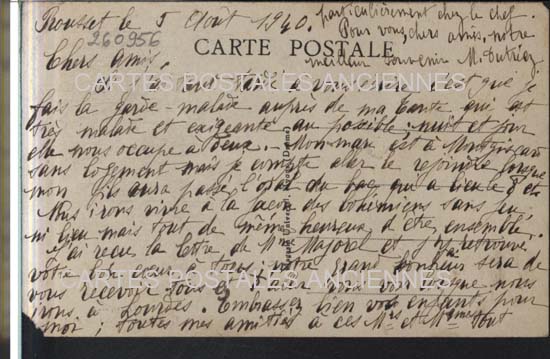 Rousset le 5 Août 1940.
particulièrement chez le chef.
Pour vous, chers amis, notre
meilleur souvenir M. Dutriez
260956
CARTE POSTALE
Chers amis,
CARTES POSTALES ANCIENNES
si tard à vous c'est que je
fais la garde-malade auprès de ma tante qui est
très malade et exigeante au possible; nuit et jour
elle nous occupe à deux. Mon mari est à
sans logement mais je compte aller le rejoindre lorsque
mon fils aura passé l'oral du bac qui a lieu le 8 ct.
Nous irons vivre à la façon des bohémiens sans feu
ni lieu mais tout de même heureux d'être ensemble.
J'ai reçu la lettre de Mme Majorel et j'y ai retrouvé
votre cœur à tous; notre grand bonheur sera de
CARTES POSTALES ANCIENNES
vous recevoir tous et d'aller vous voir lorsque nous
irons à Lourdes. Embrassez bien vos enfants pour
moi; toutes mes amitiés à ces Mrs et Mmes tout